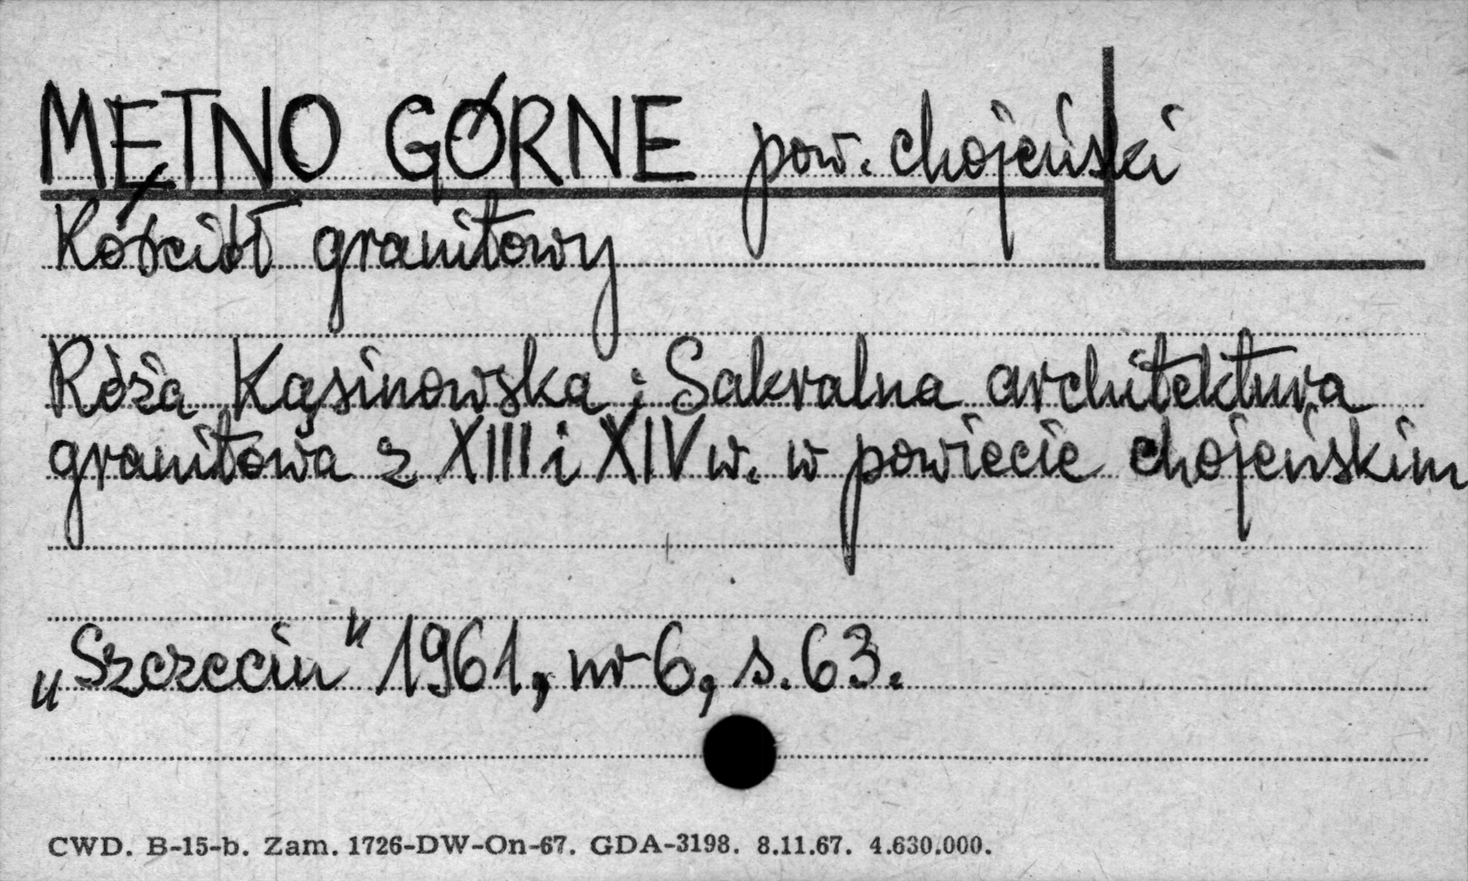 MĘTNO GÓRNE pow. chojeński
Kościół granitowy
Róża Kąsinowska : Sakralna architektura
granitowa z XIII i XIV w. w powiecie chojeńskim
„Szczecin" 1961, nr 6, s. 63.
CWD. B-15-b. Zam. 1726-DW-On-67. GDA-3198. 8.11.67. 4.630.000.